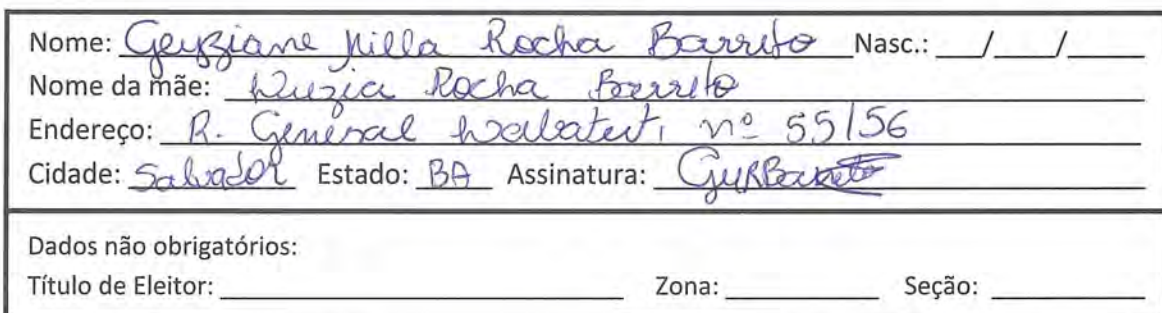 Nome: Geyziane Milla Rocha Barreto Nasc.: / /
Nome da mãe: Luzia Rocha Barreto
Endereço: R. General Labatut, nº 55/56
Cidade: Salvador Estado: BA Assinatura: GMRBarreto
Dados não obrigatórios:
Título de Eleitor: Zona: Seção: